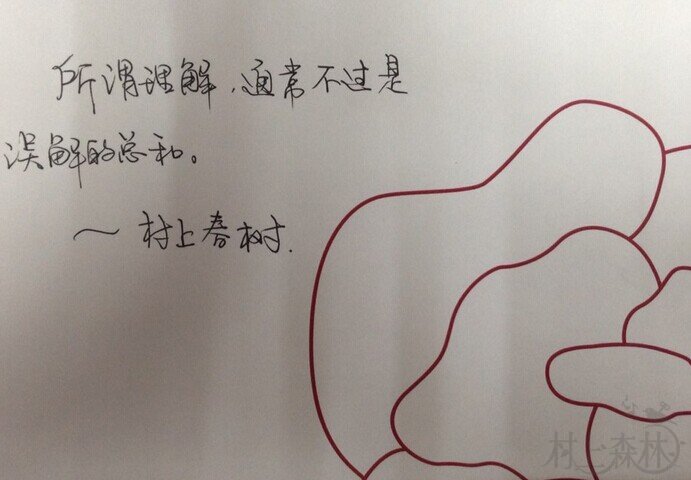 所谓理解，通常不过是
误解的总和。
～村上春树.
村上森林